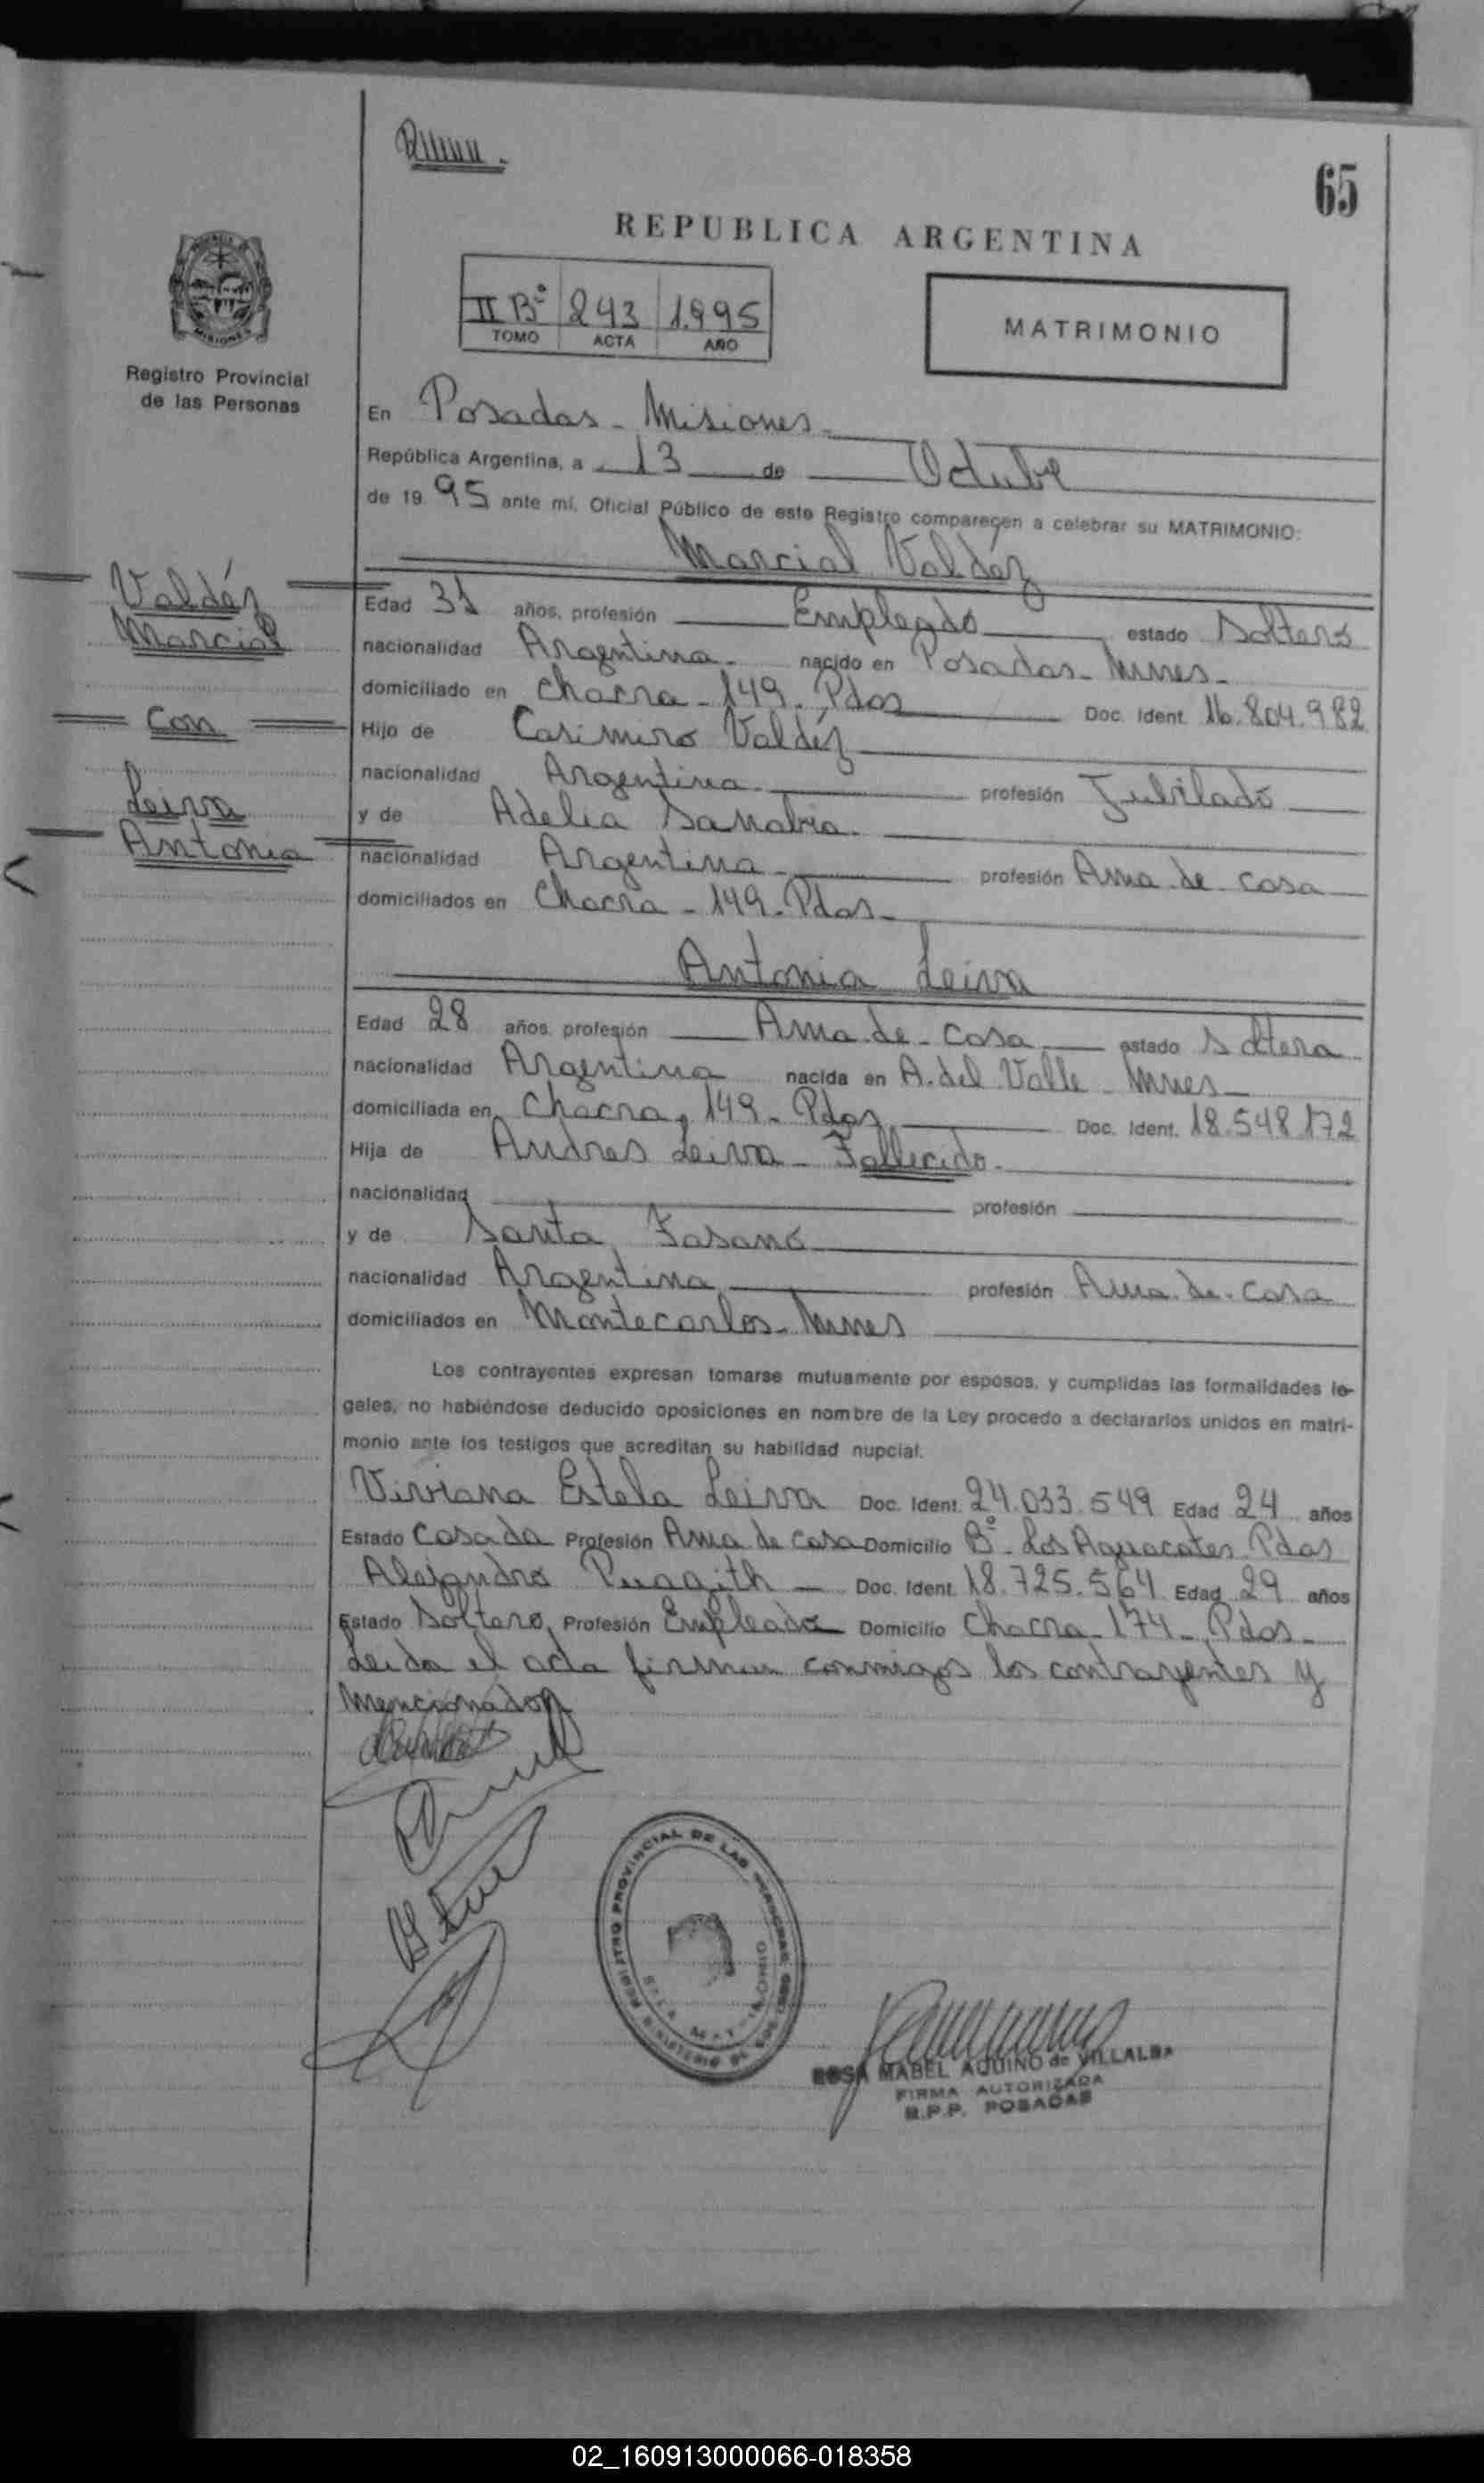 65
REPUBLICA ARGENTINA
II Bº 243 1.995
TOMO ACTA AÑO
MATRIMONIO
Registro Provincial
de las Personas
En Posadas - Misiones -
República Argentina, a 13 de Octubre
de 19 95 ante mí, Oficial Público de este Registro comparecen a celebrar su MATRIMONIO:
Marcial Valdéz
Valdéz
Marcial
Con
Leiva
Antonia
Edad 31 años, profesión Empleado estado Soltero
nacionalidad Argentina - nacido en Posadas - Mnes -
domiciliado en chacra - 149 - Pdas Doc. Ident. 16.804.982
Hijo de Casimiro Valdéz
nacionalidad Argentina profesión Jubilado
y de Adelia Sanabria -
nacionalidad Argentina profesión Ama de casa
domiciliados en Chacra - 149 - Pdas -
Antonia Leiva
Edad 28 años, profesión Ama de - casa estado Soltera
nacionalidad Argentina nacida en A. del Valle - Mnes -
domiciliada en Chacra, 149 - Pdas Doc. Ident. 18.548.172
Hija de Andres Leiva - Fallecido -
nacionalidad profesión
y de Santa Fasano
nacionalidad Argentina profesión Ama - de - casa
domiciliados en Montecarlos - Mnes
Los contrayentes expresan tomarse mutuamente por esposos, y cumplidas las formalidades le-
gales, no habiéndose deducido oposiciones en nombre de la Ley procedo a declararlos unidos en matri-
monio ante los testigos que acreditan su habilidad nupcial.
Viviana Estela Leiva Doc. Ident. 24.033.549 Edad 24 años
Estado Casada Profesión Ama de casa Domicilio Bº - Los Aguacates Pdas
Alejandro Doc. Ident. 18.725.564 Edad 29 años
Estado Soltero Profesión Empleado Domicilio Chacra - 174 - Pdas -
Leida el acta firman conmigos los contrayentes y
mencionados
REGISTRO PROVINCIAL DE LAS PERSONAS
ROSA MABEL AQUINO de VILLALBA
FIRMA AUTORIZADA
R.P.P. POSADAS
02_160913000066-018358